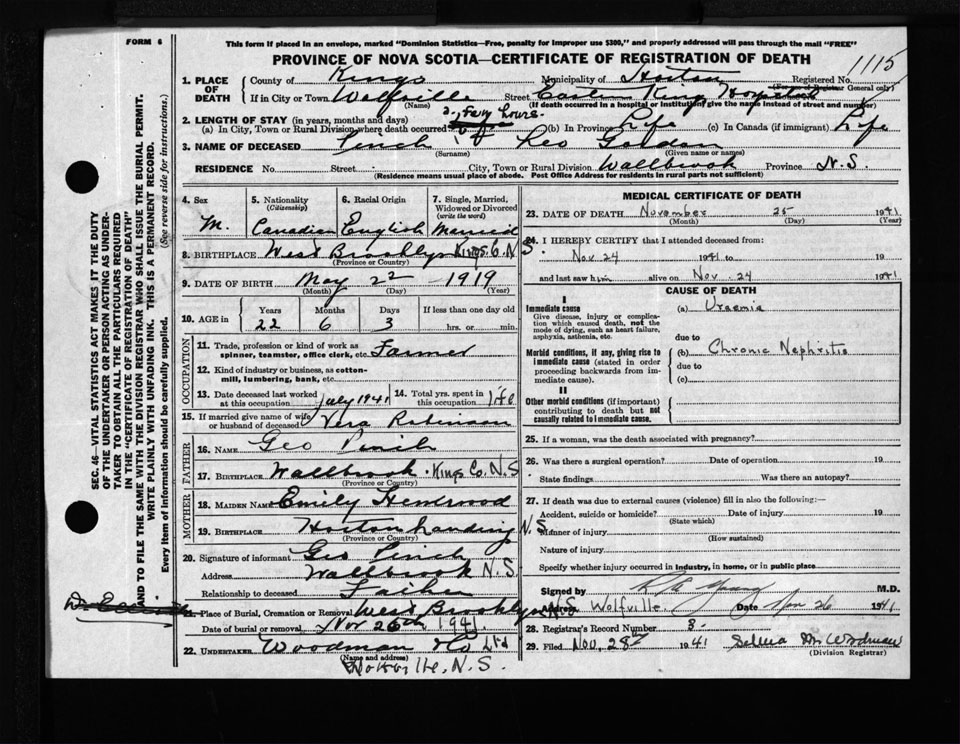 FORM 6
This form if placed in an envelope, marked "Dominion Statistics—Free, penalty for improper use $300," and properly addressed will pass through the mail "FREE"
PROVINCE OF NOVA SCOTIA—CERTIFICATE OF REGISTRATION OF DEATH
1115
1. PLACE OF DEATH
County of Kings Municipality of Horton Registered No.
(For use of Registrar General only)
If in City or Town Wolfville Street Eastern King Hospital
(Name) (If death occurred in a hospital or institution give the name instead of street and number)
2. LENGTH OF STAY (in years, months and days) a few hours
(a) In City, Town or Rural Division where death occurred (b) In Province Life (c) In Canada (if immigrant) Life
3. NAME OF DECEASED Pinch Leo Gordon
(Surname) (Given name or names)
RESIDENCE No. Street City, Town or Rural Division Wallbrook Province N.S.
(Residence means usual place of abode. Post Office Address for residents in rural parts not sufficient)
4. Sex M.
5. Nationality (Citizenship) Canadian
6. Racial Origin English
7. Single, Married, Widowed or Divorced (write the word) Married
8. BIRTHPLACE West Brooklyn Kings Co. N.S.
(Province or Country)
9. DATE OF BIRTH May 22 1919
(Month) (Day) (Year)
10. AGE in Years Months Days If less than one day old
22 6 3 hrs. or min.
OCCUPATION
11. Trade, profession or kind of work as spinner, teamster, office clerk, etc. Farmer
12. Kind of industry or business, as cotton-mill, lumbering, bank, etc.
13. Date deceased last worked at this occupation July 1941
14. Total yrs. spent in this occupation life
15. If married give name of wife or husband of deceased Vera Robinson
FATHER
16. NAME Geo Pinch
17. BIRTHPLACE Wallbrook Kings Co. N.S.
(Province or Country)
MOTHER
18. MAIDEN NAME Emily
19. BIRTHPLACE Horton Landing N.S.
(Province or Country)
20. Signature of informant Geo Pinch
Address Wallbrook N.S.
Relationship to deceased Father
21. Place of Burial, Cremation or Removal West Brooklyn N.S.
Date of burial or removal Nov 26th 1941
22. UNDERTAKER Woodman & Co Ltd
(Name and address)
Wolfville, N.S.
MEDICAL CERTIFICATE OF DEATH
23. DATE OF DEATH November 25 1941
(Day) (Year)
24. I HEREBY CERTIFY that I attended deceased from:
Nov 24 1941 to 19
and last saw him alive on Nov. 24 1941
CAUSE OF DEATH
I
Immediate cause
Give disease, injury or complication which caused death, not the mode of dying, such as heart failure, asphyxia, asthenia, etc.
(a) Uraemia
due to
Morbid conditions, if any, giving rise to immediate cause (stated in order proceeding backwards from immediate cause).
(b) Chronic Nephritis
due to
(c)
II
Other morbid conditions (if important) contributing to death but not causally related to immediate cause.
25. If a woman, was the death associated with pregnancy?
26. Was there a surgical operation? Date of operation 19
State findings Was there an autopsy?
27. If death was due to external causes (violence) fill in also the following:—
Accident, suicide or homicide? Date of injury 19
(State which)
Manner of injury
(How sustained)
Nature of injury
Specify whether injury occurred in industry, in home, or in public place
Signed by M.D.
Address Wolfville. Date Nov 26 1941
28. Registrar's Record Number 8
29. Filed Nov. 28th 1941 Selena M. Woodman
(Division Registrar)
SEC. 46—VITAL STATISTICS ACT MAKES IT THE DUTY
OF THE UNDERTAKER OR PERSON ACTING AS UNDERTAKER TO OBTAIN ALL THE PARTICULARS REQUIRED
IN THE "CERTIFICATE OF REGISTRATION OF DEATH"
AND TO FILE THE SAME WITH THE DIVISION REGISTRAR WHO SHALL ISSUE THE BURIAL PERMIT.
WRITE PLAINLY WITH UNFADING INK. THIS IS A PERMANENT RECORD.
Every item of information should be carefully supplied. (See reverse side for instructions.)